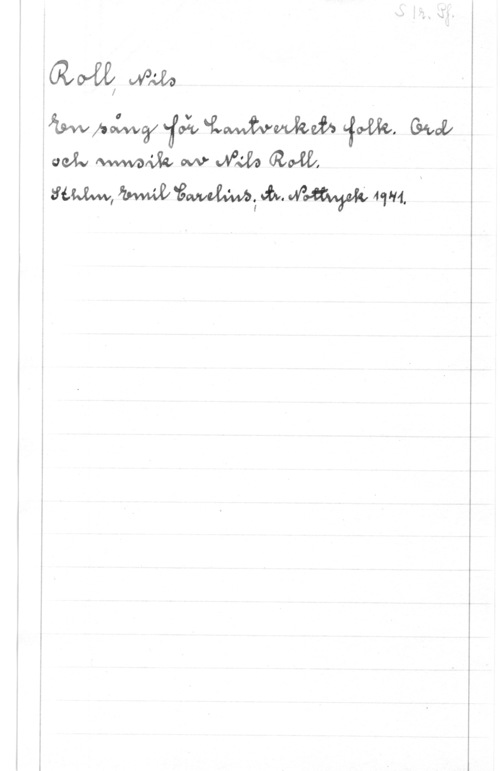 S 1 r. Pf.
Roll, Nils
En sång för hantverkets folk. Ord
och musik av Nils Roll.
Sthlm, Emil Carelius; tr. Nottryck 1941.